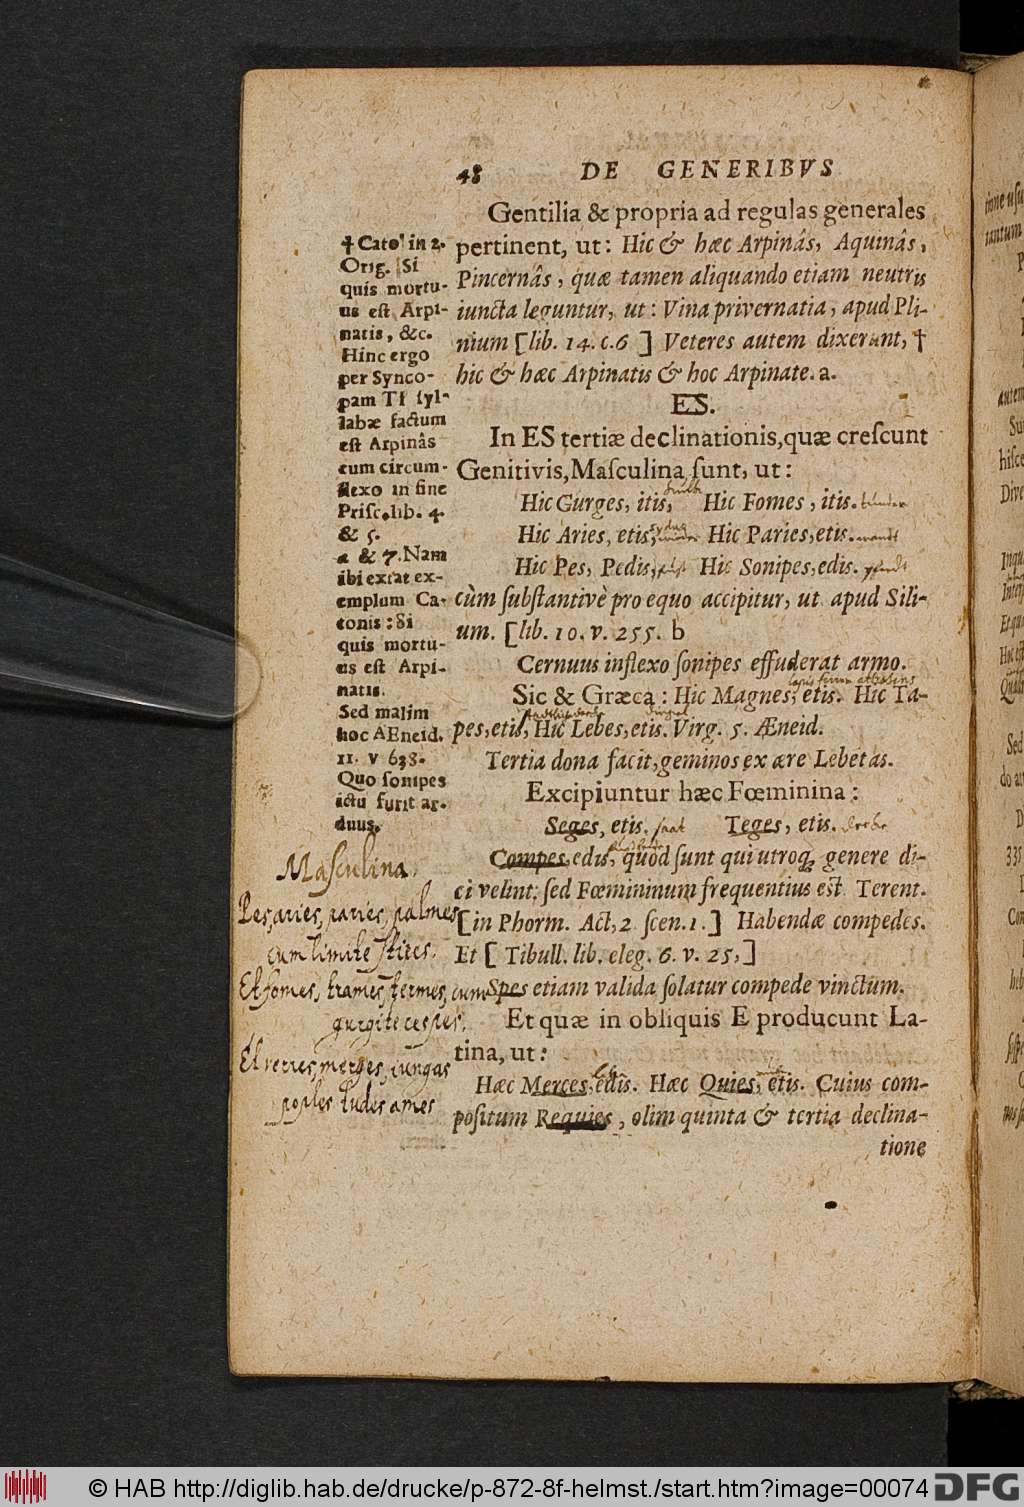 48 DE GENERIBVS
Gentilia & propria ad regulas generales
pertinent, ut: Hic & hæc Arpinâs, Aquinâs,
Pincernâs, quæ tamen aliquando etiam neutris
iuncta leguntur, ut: Vina privernatia, apud Pli-
nium [lib. 14. c.6 ] Veteres autem dixerunt, †
hic & hæc Arpinatis & hoc Arpinate. a.
ES.
In ES tertiæ declinationis, quæ creſcunt
Genitivis, Maſculina ſunt, ut:
Hic Gurges, itis, Hic Fomes, itis. 
Hic Aries, etis, Hic Paries, etis. wandt
Hic Pes, Pedis, Hic Sonipes, edis. pferdt
cùm ſubſtantivè pro equo accipitur, ut apud Sili-
um. [lib. 10. v. 255. b
Cernuus inflexo ſonipes effuderat armo.
Sic & Græca: Hic Magnes, etis. Hic Ta-
pes, etis, Hic Lebes, etis. Virg. 5. Æneid.
Tertia dona facit, geminos ex ære Lebetas.
Excipiuntur hæc Fœminina:
Seges, etis. saat Teges, etis. decke
Compes, edis, quod ſunt qui utroq; genere di-
ci velint: ſed Fœmininum frequentius eſt Terent.
[in Phorm. Act, 2 ſcen. 1.] Habendæ compedes.
Et [ Tibull. lib. eleg. 6. v. 25, ]
Spes etiam valida ſolatur compede vinctum.
Et quæ in obliquis E producunt La-
tina, ut:
Hæc Merces, edis. Hæc Quies, etis. Cuius com-
poſitum Requies, olim quinta & tertia declina-
tione
† Cato in 2.
Orig. Si
quis mortu-
us eſt Arpi-
natis, &c.
Hinc ergo
per Synco-
pam TI ſyl-
labæ factum
eſt Arpinâs
cum circum-
flexo in fine
Priſc. lib. 4.
& 5.
a & 7. Nam
ibi extat ex-
emplum Ca-
tonis: Si
quis mortu-
us eſt Arpi-
natis.
Sed malim
hoc AEneid.
11. v 638.
Quo ſonipes
ictu furit ar-
duus.
Masculina.
Pes, aries, paries, palmes
cum limite stites.
Et fomes, trames, termes, cum
gurgite cespes.
Et verres, merges, iungas
poples tudes ames
© HAB http://diglib.hab.de/drucke/p-872-8f-helmst./start.htm?image=00074 DFG